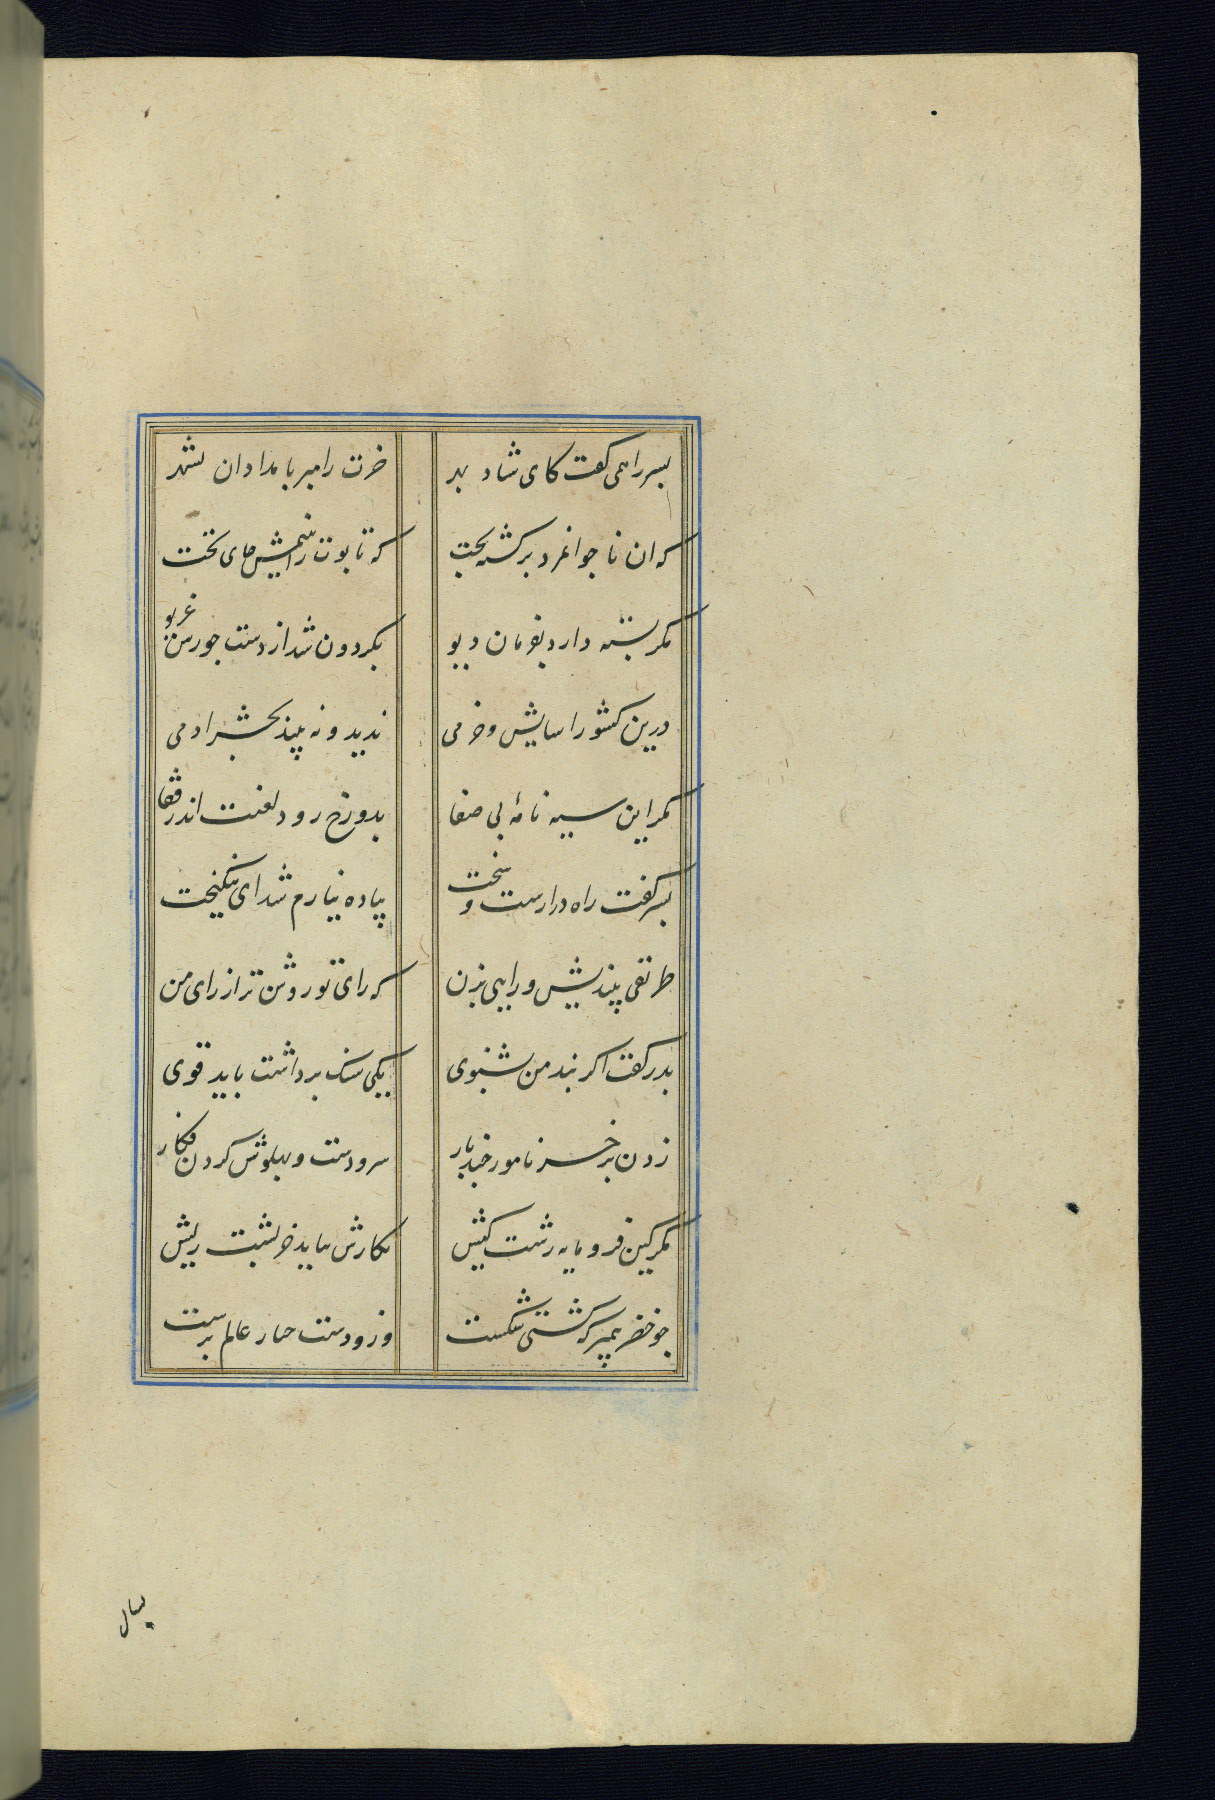 بسر راهمی کفت کای شاد بهر خرت را مبر بامدادان بشهر
که ان ناجوانمرد برکشته بخت که تابوت بینمش جای تخت
کمر بسته دارد بفرمان دیو بکردون شد از دست جورش غریو
درین کشور اسایش و خرمی ندید و نه بیند بچشم ادمی
مکر این سیه نامۀ بی صفا بدوزخ رود لعنت اندر قفا
پسر کفت راه درازست و سخت پیاده نیارم شد ای نیکبخت
طریقی بیندیش و رایی بزن که رای تو روشن تر از رای من
پدر کفت اکر پند من بشنوی یکی سنک برداشت باید قوی
زدن بر خر نامور چند بار سر و دست و پهلوش کردن فکار
مکر کین فرومایه زشت کیش بکارش نیاید خر پشت ریش
چو خضر پیمبر که کشتی شکست وزو دست جبار عالم ببست
بسال